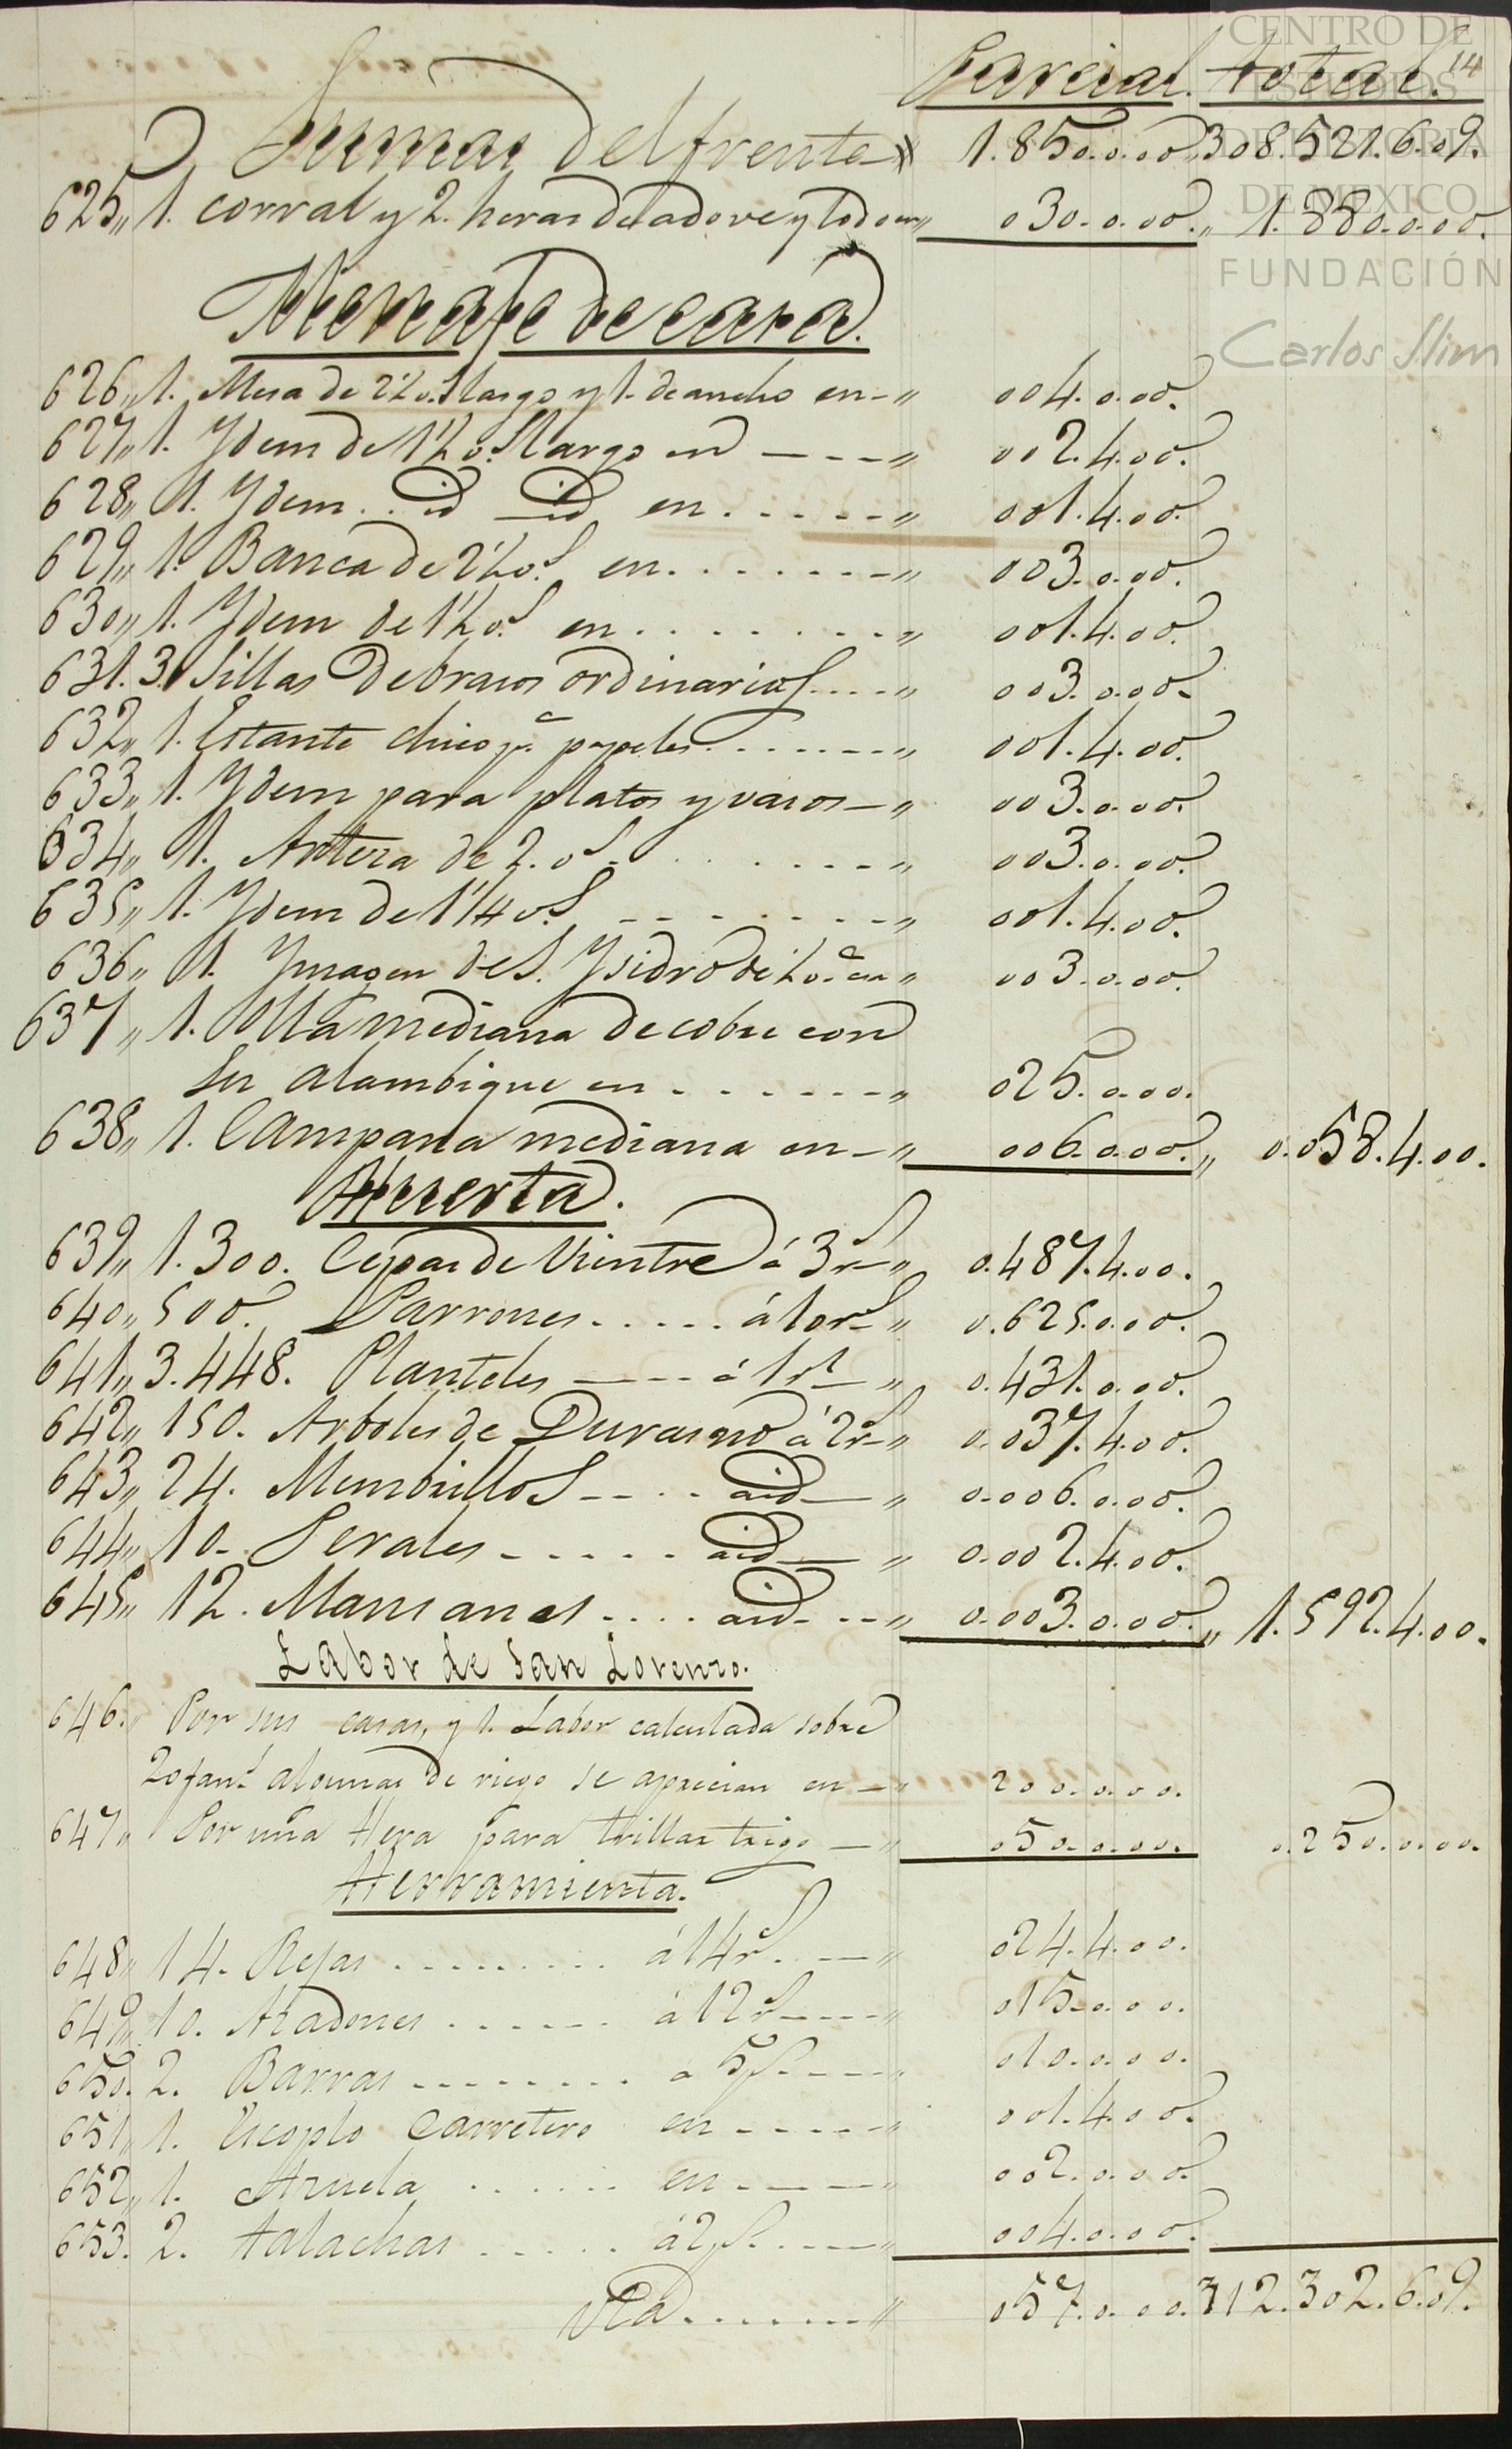 Parcial. total. 14
Sumas del frente 1.850.0.00 308.521.6.09.
625,, 1. corral y 2. heras de adove y lodo en,, 030.0.00.,, 1.880.0.00.
Menaje de casa.
626,, 1. Mesa de 2½ v.s largo y 1. de ancho en-,, 004.0.00.
627,, 1. Ydem de 1½ v.s largo en ----,, 002.4.00.
628,, 1. Ydem.. id id en.....-,, 001.4.00.
629,, 1. Banca de 2½ v.s en.......-,, 003.0.00.
630,, 1. Ydem de 1½ v.s en........-,, 001.4.00.
631. 3. Sillas de brasos ordinarios....-,, 003.0.00.
632,, 1. Estante chico p.a papeles.......--,, 001.4.00.
633,, 1. Ydem para platos y vasos-,, 003.0.00.
634,, 1. Artesa de 2. v.s.......---,, 003.0.00.
635,, 1. Ydem de 1¼ v.s -------,, 001.4.00.
636,, 1. Ymagen de S. Ysidro de ½ v.a en,, 003.0.00.
637,, 1. Olla mediana de cobre con
su alambique en.......-,, 025.0.00.
638,, 1. Campana mediana en-,, 006.0.00.,, 0.058.4.00.
Huerta.
639,, 1.300. Cepas de Vientre á 3 r.s-,, 0.487.4.00.
640,, 500. Parrones..... á 10 r.s-,, 0.625.0.00.
641,, 3.448. Planteles ---- á 1 r.l-,, 0.431.0.00.
642,, 150. Arboles de Durasno á 2 r.s-,, 0.037.4.00.
643,, 24. Membrillos--.. aid-,, 0.006.0.00.
644,, 10. Perales-..... aid-,, 0.002.4.00.
645,, 12. Mansanos.... aid--,, 0.003.0.00.,, 1.592.4.00.
Labor de San Lorenzo.
646. Por sus casas, y 1. Labor calculada sobre
20 fan.s algunas de riego se aprecian en-,, 200.0.00.
647,, Por una Hera para trillar trigo-,, 050.0.00. 0.250.0.00.
Herramienta.
648,, 14. Rejas......... á 14 r.s.-,, 024.4.00.
649,, 10. Aradones...... á 12 r.s---,, 015.0.00.
650. 2. Barras-....... a 5 p.s----,, 010.0.00.
651,, 1. Escoplo Carretero en-----,, 001.4.00.
652,, 1. Azuela...... en----,, 002.0.00.
653. 2. talachas..... á 2 p.s.---,, 004.0.00.
Vta.......,, 057.0.00. 312.302.6.09.
CENTRO DE
ESTUDIOS
DE HISTORIA
DE MEXICO
FUNDACIÓN
Carlos Slim